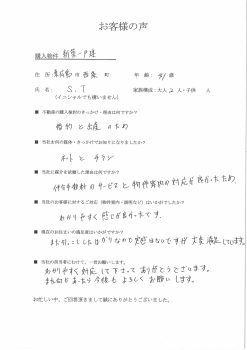 お客様の声
購入物件 新築一戸建
住所: 市 町 年齢: 41 歳
氏名: S.T 家族構成:大人 2 人・子供 人
(イニシャルでも構いません)
■ 不動産の購入検討のきっかけ・理由は何ですか?
婚約と出産のため
■ 当社お何の媒体・きっかけでお知りになりましたか?
ネットとチラシ
■ 当社に媒介を依頼した理由は何ですか?
仲介手数料のサービスと物件案内の対応が良かったため
■ 当社のお客様に対するご対応(物件案内・説明など)はいかがでしたか?
わかりやすく感じが良かったです。
■ 現在のお住まいの満足度はいかがですか?
まだ引っこしたばかりなので実感はないですが大変満足しています。
■ 当社の担当者にむけて、一言お願いします。
わかりやすく対応して下さってありがとうございます。
また何かあったら今後もよろしくお願いします。
お忙しい中、ご回答頂きまして誠にありがとうございました。